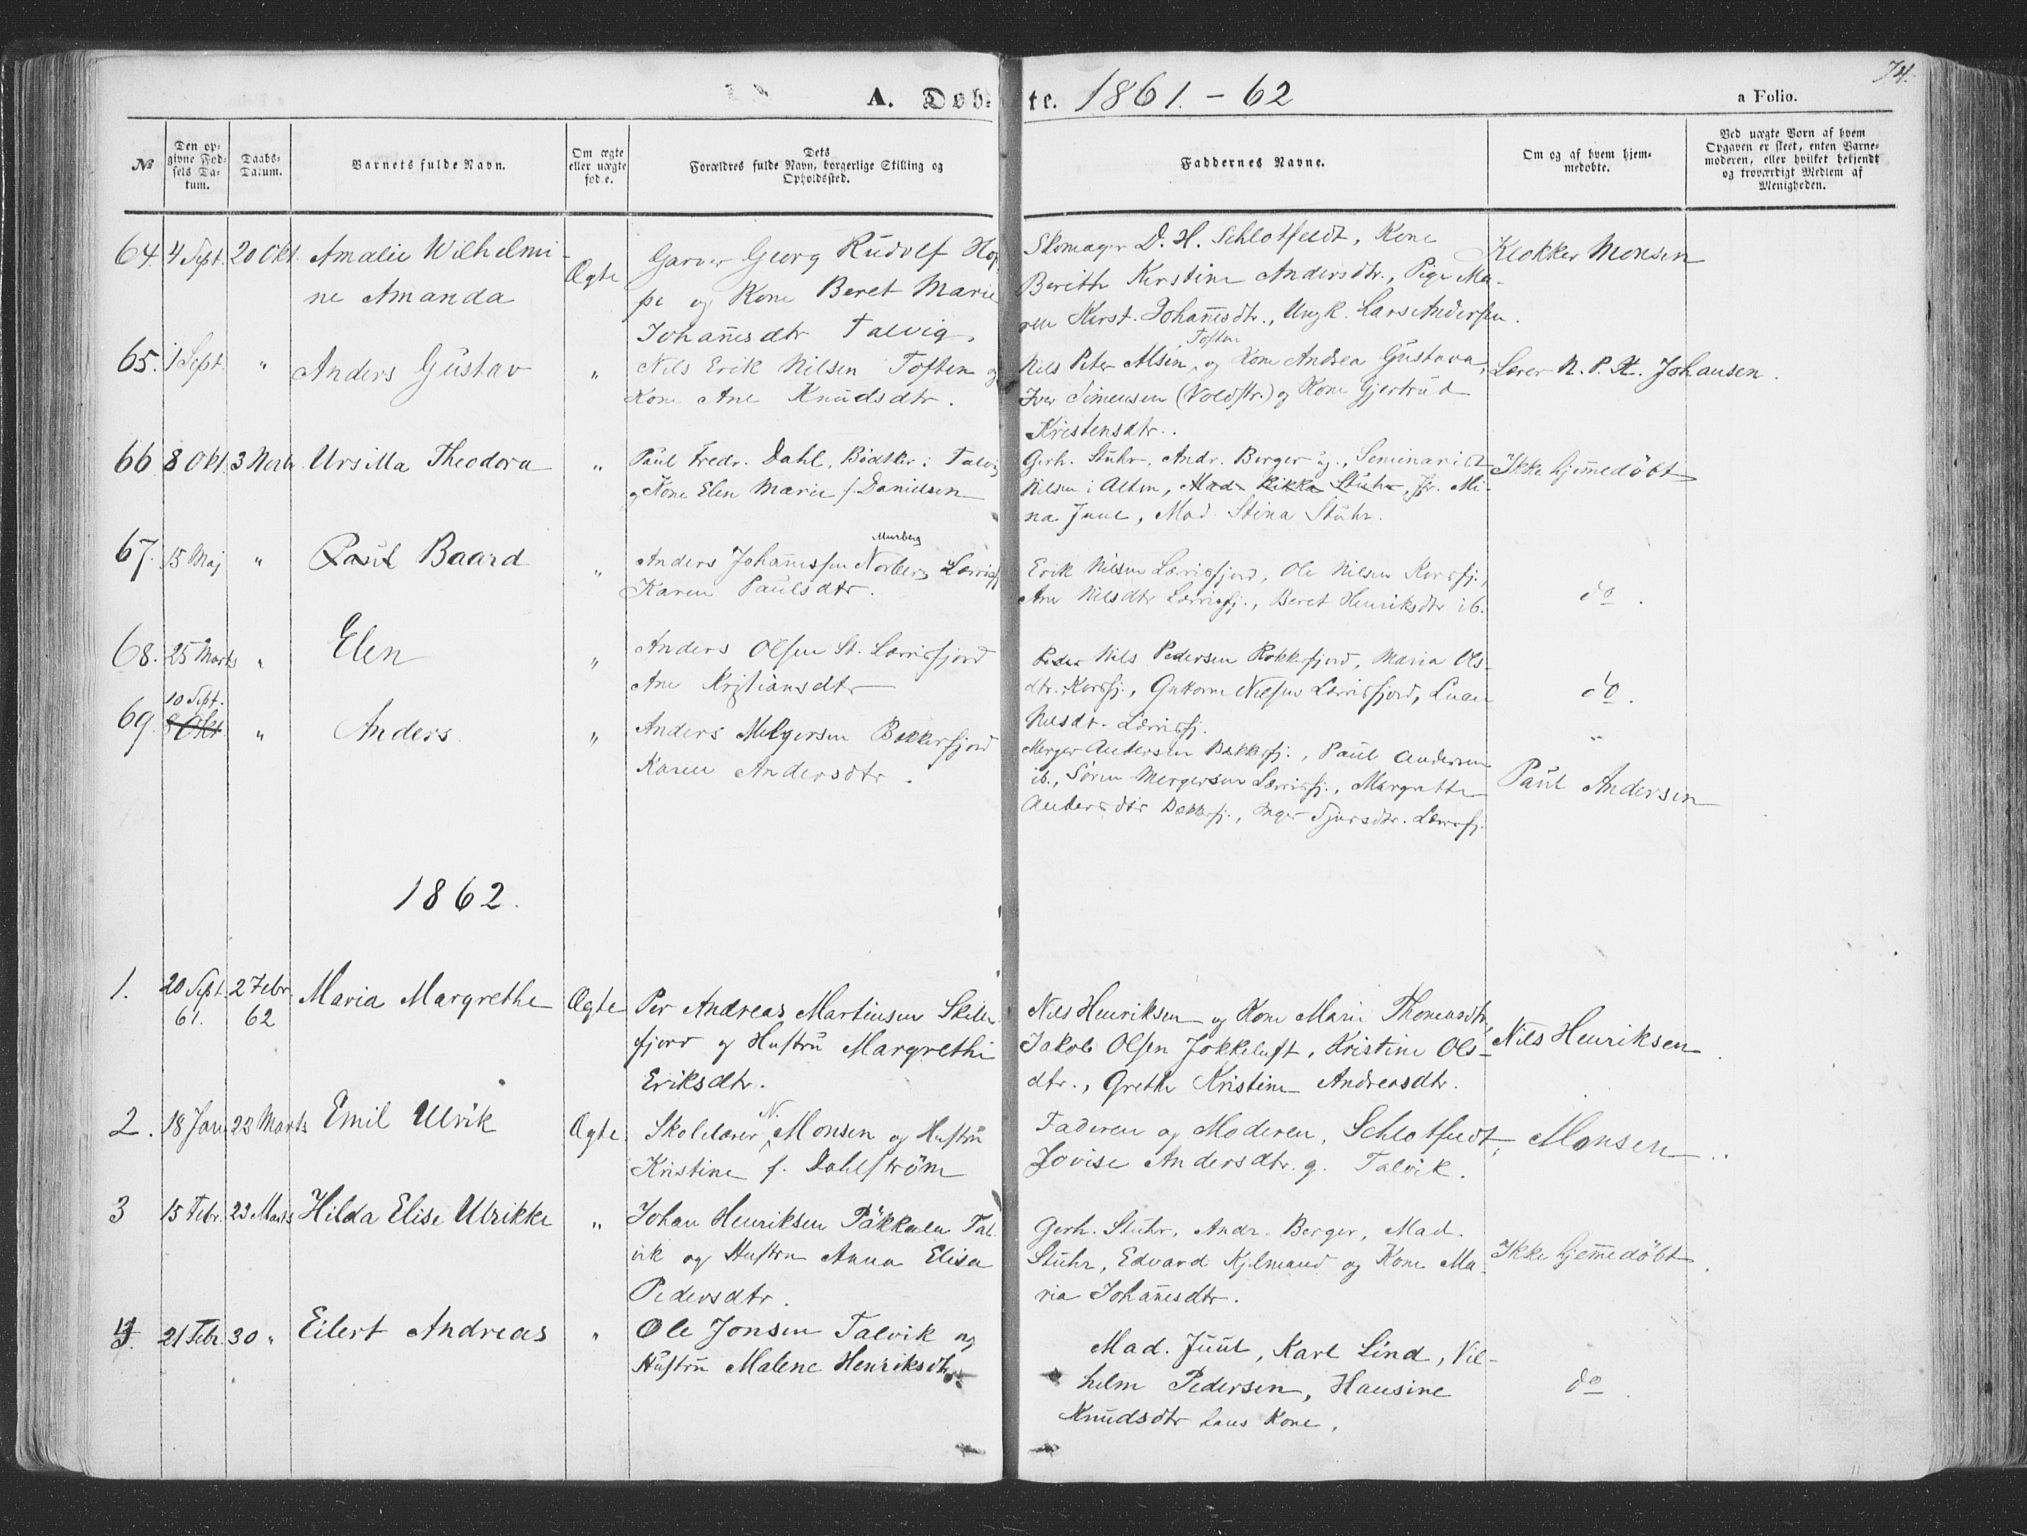 74.
A. Døb-te. 1861. - 62
a Folio.
No
Den opgivne Fødsels Datum.
Daabs-Datum.
Barnets fulde Navn.
Om ægte eller uægte fød e.
Dets Forældres fulde Navn, borgerlige Stilling og Opholdssted.
Faddernes Navne.
Om og af hvem hjemmedøbte.
Ved uægte Børn af hvem Opgaven er skeet, enten Barnemoderen, eller hvilket bekjendt og troværdigt Medlem af Menigheden.
64. 4 Sept. 20 Okt. Amalie Wilhelmi-
ne Amanda
Ægte
Garver Georg Rudolf Hop-
pe og Kone Beret Marie
Johannesdtr Talvig.
Skomager D. H. Schlotfeldt, Kone
Berith Kirstine Andersdtr., Pige Ma-
ren Kirst. Johannesdtr., Ungk. Lars Andersen.
Klokker Monsen
65. 1 Sept. " Anders Gustav "
Nils Erik Nilsen Toften og
Kone Ane Knudsdtr.
Toften
Nils Peter Alsen, og Kone Andrea Gustava,
Iver Simensen (Voldstr.) og Kone Gjertrud
Kristensdtr.
Lærer N. P. H. Johansen.
66 8 Okt. 3 Novbr Ursilla Theodora "
Paul Fredr. Dahl, Bødker i Talvig
og Kone Elen Marie f. Danielsen
Gerh. Stuhr, Andr. Berger ug., Seminarist
Nilsen i Alten, Mad. Rikka Stuhr, Jfr. Mi-
na Juul, Mad. Stina Stuhr.
Ikke hjemmedøbt
67. 15 Maj " Paul Baard "
Murberg
Anders Johannessen Norberg Lerrisfj
Karen Paulsdtr.
Erik Nilsen Lerrisfjord, Ole Nilsen Korsfj.,
Ane Nilsdtr Lerrisfj., Beret Henriksdtr ib.
do.
68. 25 Marts " Elen "
Anders Olsen St. Lerrisfjord
Ane Kristiansdtr
Peder Nils Pedersen Rokkefjord, Maria Ols-
dtr. Korsfj., Guttorm Nilsen Lerrisfjord,
Nilsdt. Lerrisfj.
do.
10 Sept.
69. 8 Okt. " Anders. "
Anders Melgersen Bekkerfjord
Karen Andersdtr.
Merger Andersen Bekkerfj., Paul Andersen
ib., Søren Mergersen Lerrisfj., Margrethe
Andersdtr Bekkerfj., Inger Sjursdtr. Lerrisfj.
"
Paul Andersen
1862.
1. 20 Sept. 61. 2 Febr 62 Maria Margrethe Ægte
Per Andreas Martinsen Skillefjord og Hustru Margrethe
Eriksdtr.
Nils Henriksen og Kone Marie Thomasdtr,
Jakob Olsen Jøkkeluft, Kristine Ols-
dtr., Grethe Kristine Andreasdtr.
Nils Henriksen
2. 18 Jan 23 Marts Emil Ulrik Ægte
Skolelærer N. Monsen og Hustru
Kristine f. Dahlstrøm
Faderen og Moderen, Schlotfeldt,
Jovise Andersdtr. g. Talvik.
Monsen
3 15 Febr. 23 Marts Hilda Elise Ulrikke "
Johan Henriksen Päkkelen Tal-
vik og Hustru Anna Elisa
Pedersdtr.
Gerh. Stuhr, Andr. Berger, Mad.
Stuhr, Edvard Kjelmand og Kone Ma-
ria Johannesdtr.
Ikke hjemmedøbt
4. 21 Febr. 30 " Eilert Andreas "
Ole Jonsen Talvik og
Hustru Malene Henriksdtr
Mad. Juul, Karl Lind, Vil-
helm Pedersen, Hansine
Knudsdtr hans Kone.
do.